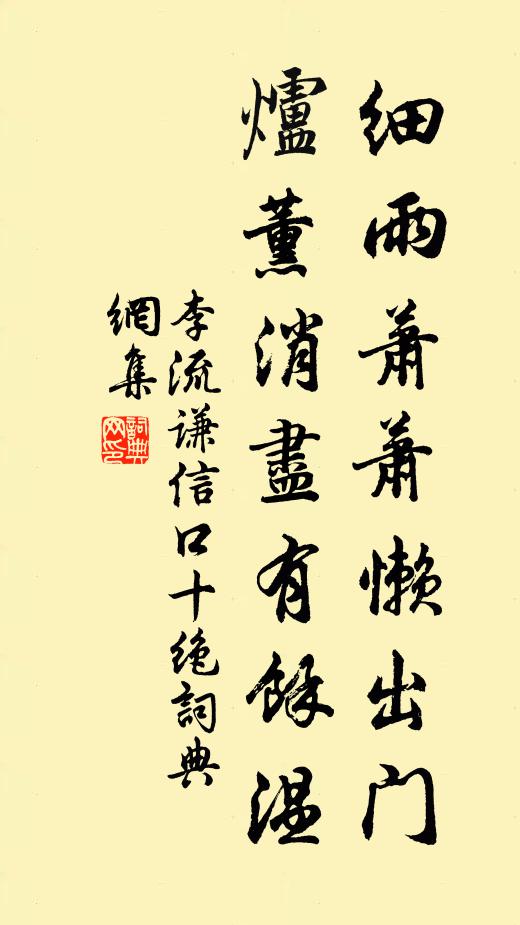 細雨蕭蕭懶出门
爐薰消盡有餘温
李流谦信口十绝詞典
網集
詞典网印